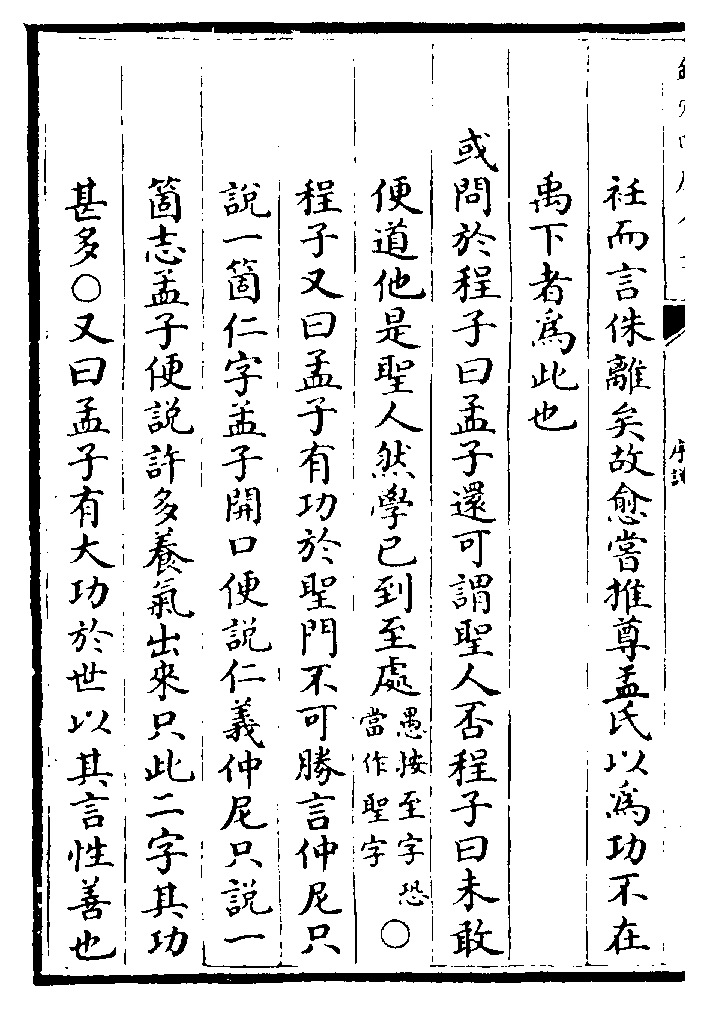 序說
衽而言侏離矣故愈嘗推尊孟氏以爲功不在
禹下者爲此也
或問於程子曰孟子還可謂聖人否程子曰未敢
便道他是聖人然學已到至處愚按至字恐當作聖字○
程子又曰孟子有功於聖門不可勝言仲尼只
說一箇仁字孟子開口便說仁義仲尼只說一
箇志孟子便說許多養氣出來只此二字其功
甚多○又曰孟子有大功於世以其言性善也